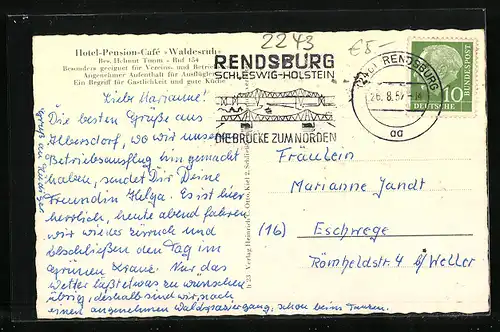 Hotel-Pension-Café »Waldesruh«
Bes. Helmut Timm - Ruf 154
Besonders geeignet für Vereins- und Betriebs
Angenehmer Aufenthalt für Ausflügler
Ein Begriff für Gastlichkeit und gute Küche
2243
€8,-
RENDSBURG
SCHLESWIG-HOLSTEIN
DIE BRÜCKE ZUM NORDEN
(24b) RENDSBURG
26.8.57
aa
DEUTSCHE
BUNDESPOST
10
Liebe Marianne!
Die besten Grüße aus
Albersdorf, wo wir unseren
Betriebsausflug hin gemacht
haben, sendet Dir Deine
Freundin Helga. Es ist hier
herrlich, heute abend fahren
wir wieder zurück und
beschließen den Tag im
Grünen Kranz. Nur das
Wetter läßt etwas zu wünschen
übrig, deshalb sind wir, nach
einem angenehmen Waldspaziergang, schon beim Tanzen.
Fräulein
Marianne Jandt
(16) Eschwege
Römheldstr. 4 b/Weller
Verlag Heinrich C. Otto, Kiel 2